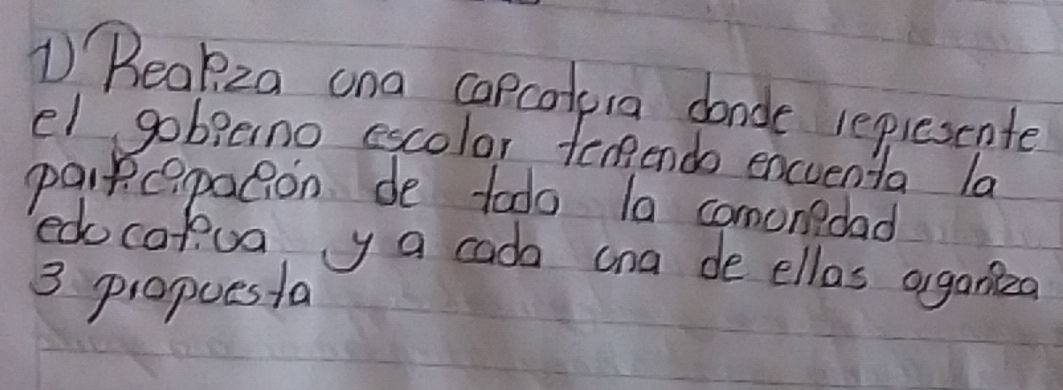 1) Realiza una caricatura donde represente
el gobierno escolar teniendo encuenta la
participacion de todo la comunidad
educativa y a cada una de ellas organiza
3 propuesta